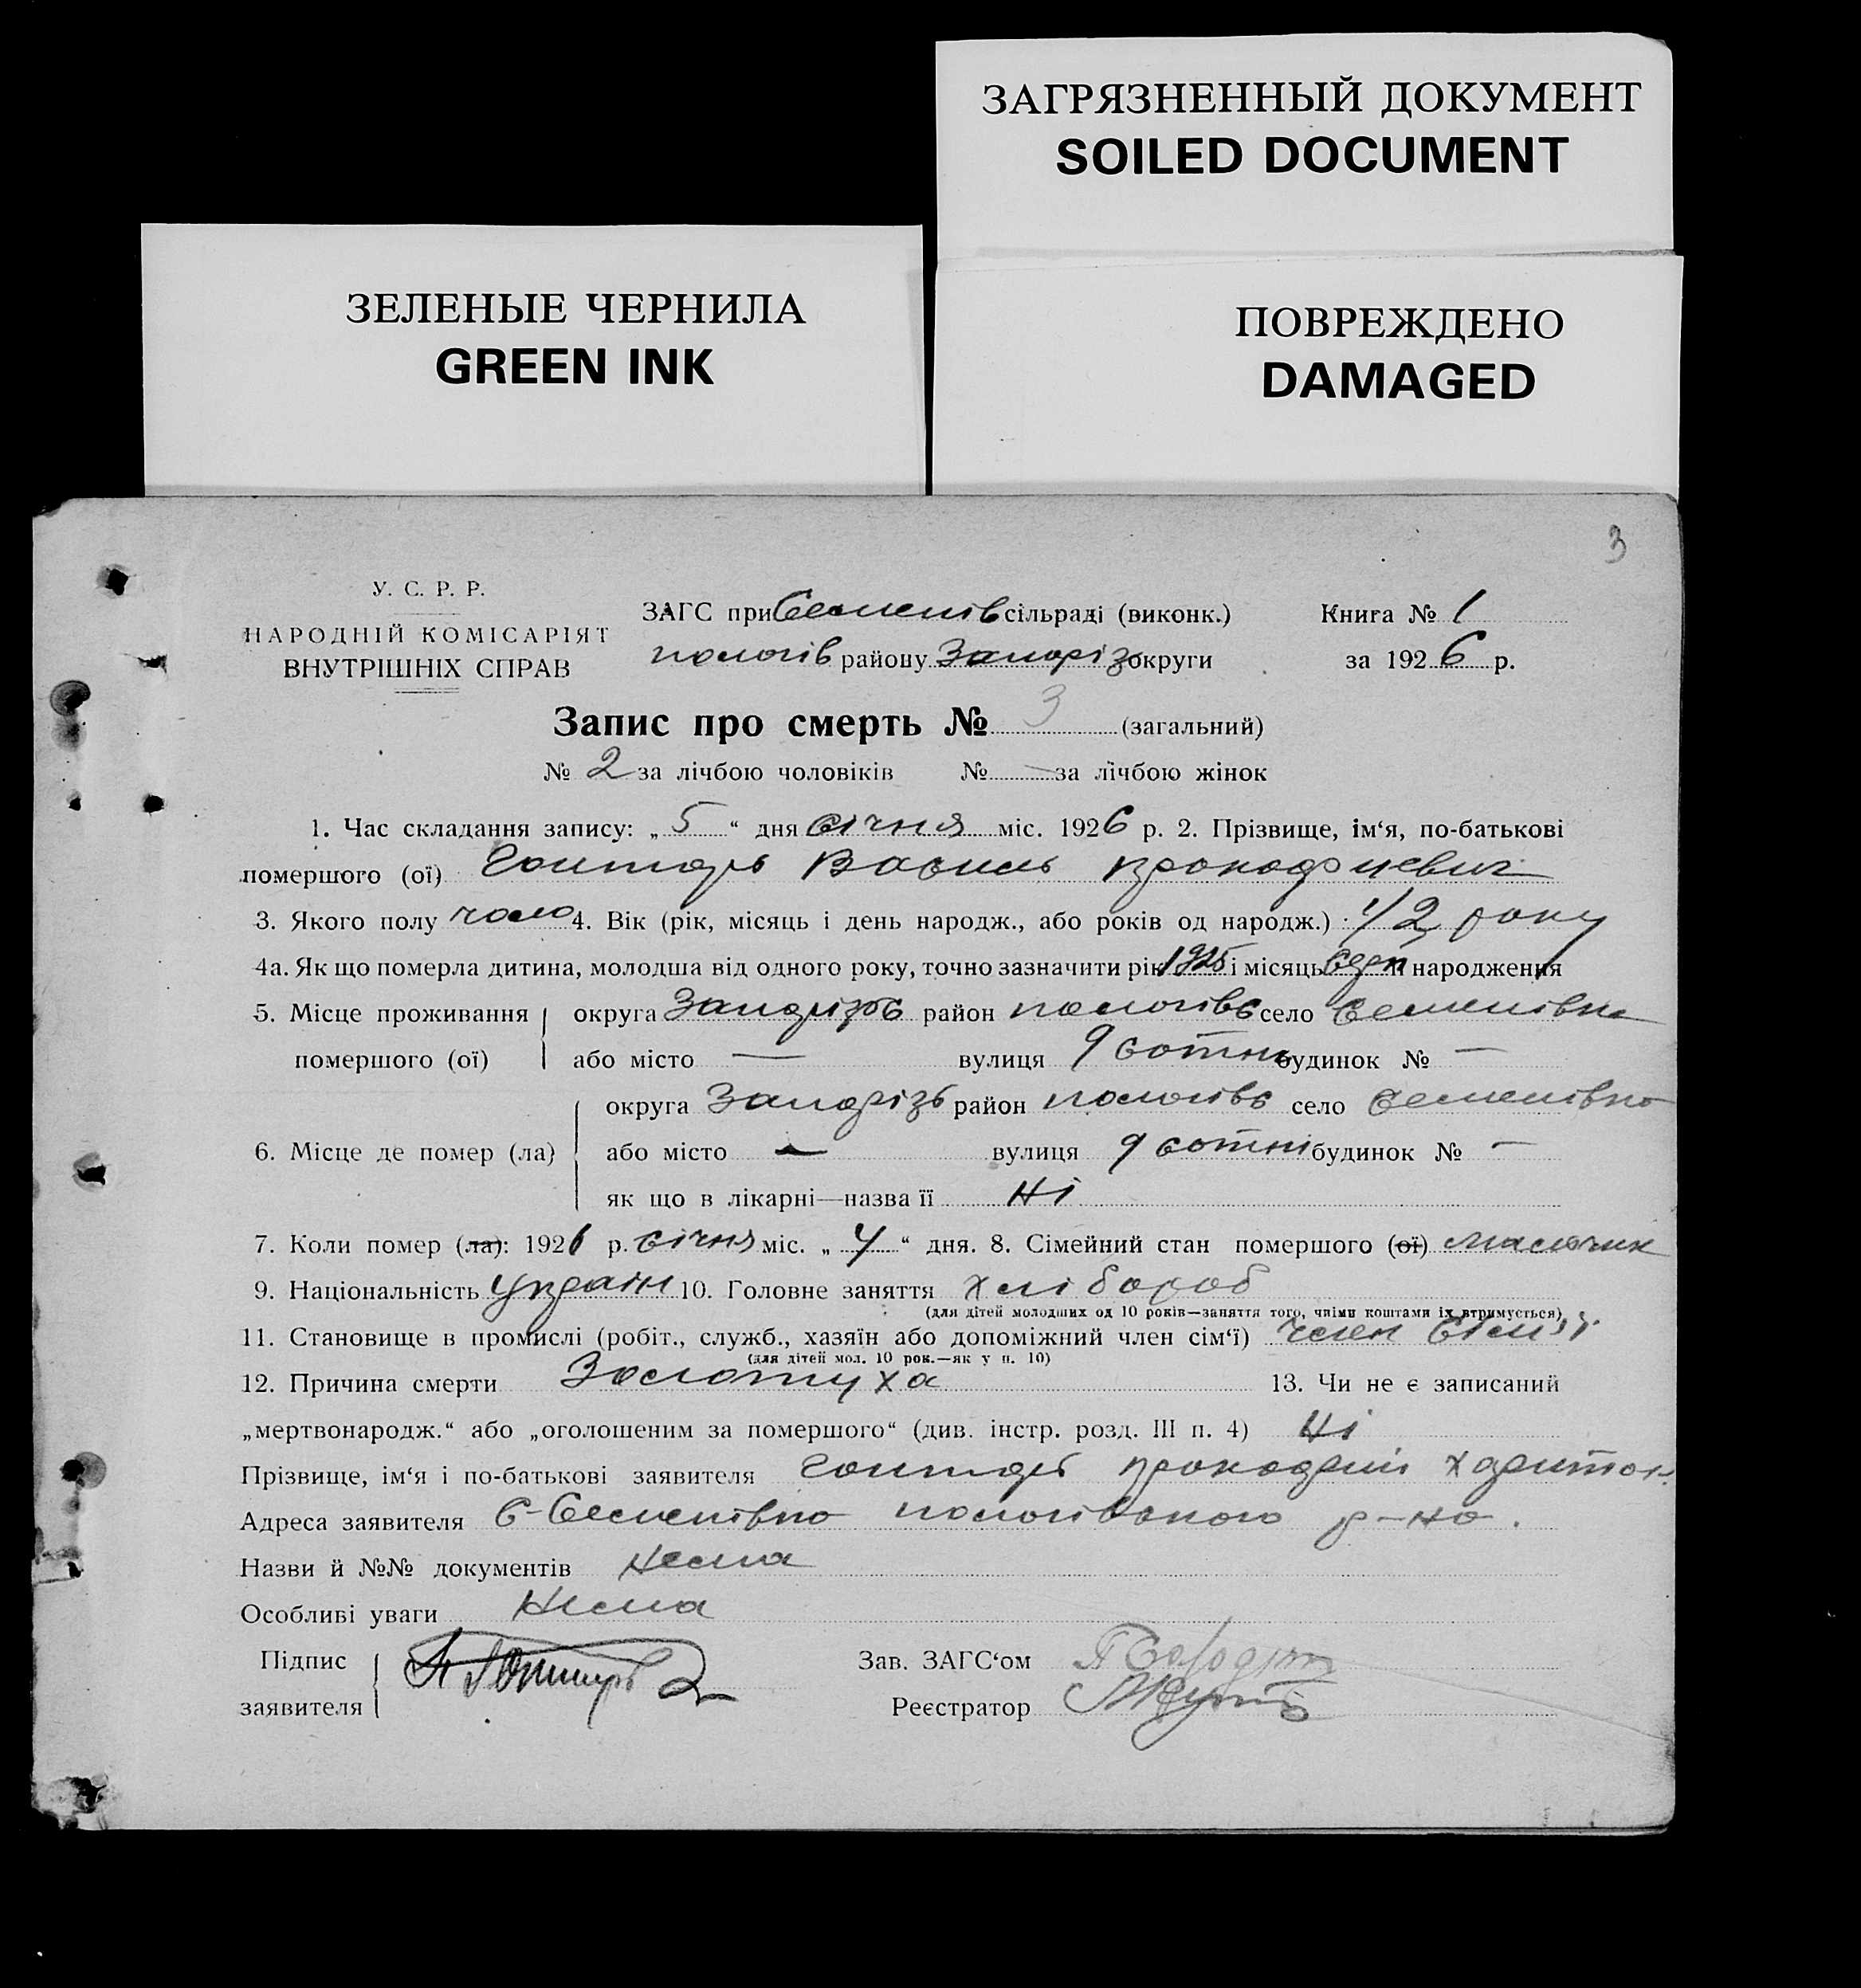 ЗАГРЯЗНЕННЫЙ ДОКУМЕНТ
SOILED DOCUMENT
ЗЕЛЕНЫЕ ЧЕРНИЛА
GREEN INK
ПОВРЕЖДЕНО
DAMAGED
3
У. С. Р. Р.
НАРОДНІЙ КОМІСАРІЯТ
ВНУТРІШНІХ СПРАВ
ЗАГС при Семенів сільраді (виконк.)
пологів району Запоріз округи
Книга № 1
за 1926 р.
Запис про смерть № 3 (загальний)
№ 2 за лічбою чоловіків № — за лічбою жінок
1. Час складання запису: „ 5 “ дня січня міс. 1926 р. 2. Прізвище, ім‘я, по-батькові
помершого (ої) Гонтарь Василь Прокофиевич
3. Якого полу чоло 4. Вік (рік, місяць і день народж., або років од народж.) 1/2 року
4а. Як що померла дитина, молодша від одного року, точно зазначити рік 1925 і місяць серп її народження
5. Місце проживання округа Запорізь район пологівс село Семенівка
помершого (ої) або місто — вулиця 9 сотня будинок № —
округа Запорізь район пологівс село Семенівка
6. Місце де помер (ла) або місто — вулиця 9 сотні будинок № —
як що в лікарні—назва її Ні
7. Коли помер (ла): 1926 р. січня міс. „ 4 “ дня. 8. Сімейний стан помершого (ої) малючик
9. Національність Україн 10. Головне заняття хлібороб
(для дітей молодших од 10 років—заняття того, чиїми коштами їх втримується)
11. Становище в промислі (робіт., служб., хазяїн або допоміжний член сім‘ї) член сім'ї
(для дітей мол. 10 рок.—як у п. 10)
12. Причина смерти Золотуха 13. Чи не є записаний
„мертвонародж.“ або „оголошеним за помершого“ (див. інстр. розд. III п. 4) Ні
Прізвище, ім‘я і по-батькові заявителя Гонтарь Прокофий Харитон
Адреса заявителя С-Семенівка пологівського р-на.
Назви й №№ документів Нема
Особливі уваги Нема
Підпис
заявителя
Зав. ЗАГС‘ом
Реєстратор